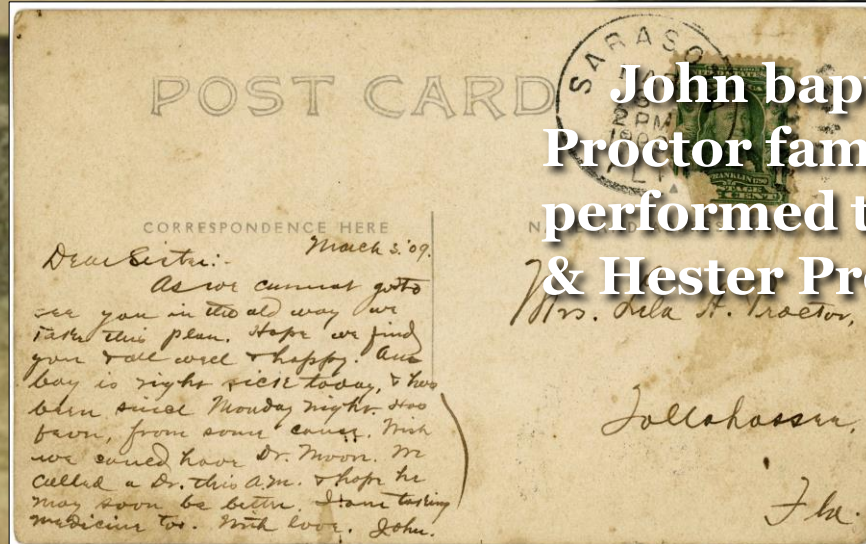 POST CARD
SARASO
2 PM
John bap
Proctor fam
performed t
& Hester Pro
CORRESPONDENCE HERE
March 3.'09.
Dear Sister:-
As we cannot go to
see you in the old way we
take this plan. Hope we find
you & all well & happy. Our
boy is right sick today, & has
been since Monday night. Has
fever, from some cause. Wish
we could have Dr. Moon. We
called a Dr. this A.M. & hope he
may soon be better. I am taking
medicine too. With love. John.
Mrs. Lila A. Proctor,
Tallahassee,
Fla.